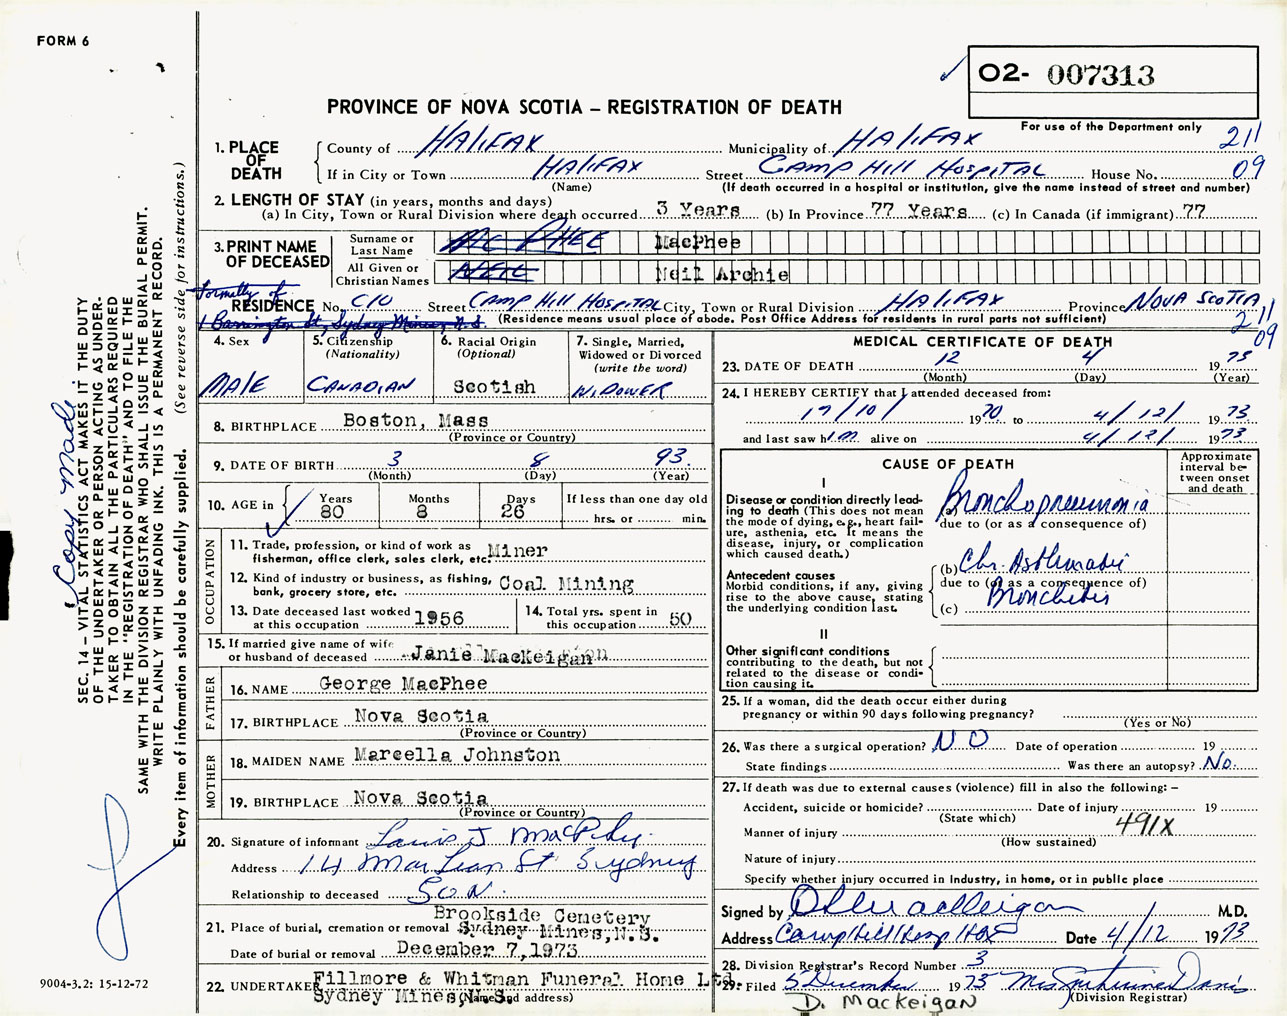 FORM 6
O2- 007313
PROVINCE OF NOVA SCOTIA – REGISTRATION OF DEATH
For use of the Department only
211
09
1. PLACE OF DEATH
County of HALIFAX Municipality of HALIFAX
If in City or Town HALIFAX Street CAMP HILL HOSPITAL House No.
(Name) (If death occurred in a hospital or institution, give the name instead of street and number)
2. LENGTH OF STAY (in years, months and days)
(a) In City, Town or Rural Division where death occurred 3 Years (b) In Province 77 Years (c) In Canada (if immigrant) 77
3. PRINT NAME OF DECEASED
Surname or Last Name Mc PHEE MacPhee
All Given or Christian Names NEIL Neil Archie
Formerly of
RESIDENCE No. C/O Street CAMP HILL HOSPITAL City, Town or Rural Division HALIFAX Province NOVA SCOTIA
1 Barrington St, Sydney Mines N.S. (Residence means usual place of abode. Post Office Address for residents in rural parts not sufficient)
211
09
4. Sex MALE
5. Citizenship (Nationality) CANADIAN
6. Racial Origin (Optional) Scotish
7. Single, Married, Widowed or Divorced (write the word) WIDOWER
8. BIRTHPLACE Boston, Mass
(Province or Country)
9. DATE OF BIRTH 3 8 93
(Month) (Day) (Year)
10. AGE in Years 80 Months 8 Days 26 If less than one day old
hrs. or min.
OCCUPATION
11. Trade, profession, or kind of work as fisherman, office clerk, sales clerk, etc. Miner
12. Kind of industry or business, as fishing, bank, grocery store, etc. Coal Mining
13. Date deceased last worked at this occupation 1956
14. Total yrs. spent in this occupation 50
15. If married give name of wife or husband of deceased Janie MacKeigan
FATHER
16. NAME George MacPhee
17. BIRTHPLACE Nova Scotia
(Province or Country)
MOTHER
18. MAIDEN NAME Marcella Johnston
19. BIRTHPLACE Nova Scotia
(Province or Country)
20. Signature of informant J MacPhee
Address 14 MacLean St Sydney
Relationship to deceased SON
21. Place of burial, cremation or removal Brookside Cemetery
Sydney Mines, N.S.
Date of burial or removal December 7, 1973
22. UNDERTAKER Fillmore & Whitman Funeral Home Ltd.
Sydney Mines, N.S.
(Name and address)
MEDICAL CERTIFICATE OF DEATH
23. DATE OF DEATH 12 4 1973
(Month) (Day) (Year)
24. I HEREBY CERTIFY that I attended deceased from:
17/10/ 1970 to 4/12/ 1973
and last saw him alive on 4/12/ 1973
CAUSE OF DEATH
Approximate interval between onset and death
I
Disease or condition directly leading to death (This does not mean the mode of dying, e.g., heart failure, asthenia, etc. It means the disease, injury, or complication which caused death.)
(a) Bronchopneumonia
due to (or as a consequence of)
Antecedent causes
Morbid conditions, if any, giving rise to the above cause, stating the underlying condition last.
(b) Chr. Asthmatic
due to (or as a consequence of)
Bronchitis
(c)
II
Other significant conditions
contributing to the death, but not related to the disease or condition causing it.
25. If a woman, did the death occur either during pregnancy or within 90 days following pregnancy?
(Yes or No)
26. Was there a surgical operation? NO Date of operation 19
State findings Was there an autopsy? No.
27. If death was due to external causes (violence) fill in also the following: –
Accident, suicide or homicide? Date of injury 19
(State which)
491X
Manner of injury
(How sustained)
Nature of injury
Specify whether injury occurred in Industry, in home, or in public place
Signed by MacKeigan M.D.
Address Camp Hill Hosp Hfx Date 4/12 1973
28. Division Registrar's Record Number 3
29. Filed 5 December 1973 Mrs Davis
(Division Registrar)
D. MacKeigan
Copy Made
SEC. 14 – VITAL STATISTICS ACT MAKES IT THE DUTY
OF THE UNDERTAKER OR PERSON ACTING AS UNDER-
TAKER TO OBTAIN ALL THE PARTICULARS REQUIRED
IN THE "REGISTRATION OF DEATH" AND TO FILE THE
SAME WITH THE DIVISION REGISTRAR WHO SHALL ISSUE THE BURIAL PERMIT.
WRITE PLAINLY WITH UNFADING INK. THIS IS A PERMANENT RECORD.
Every item of information should be carefully supplied. (See reverse side for instructions.)
9004-3.2: 15-12-72